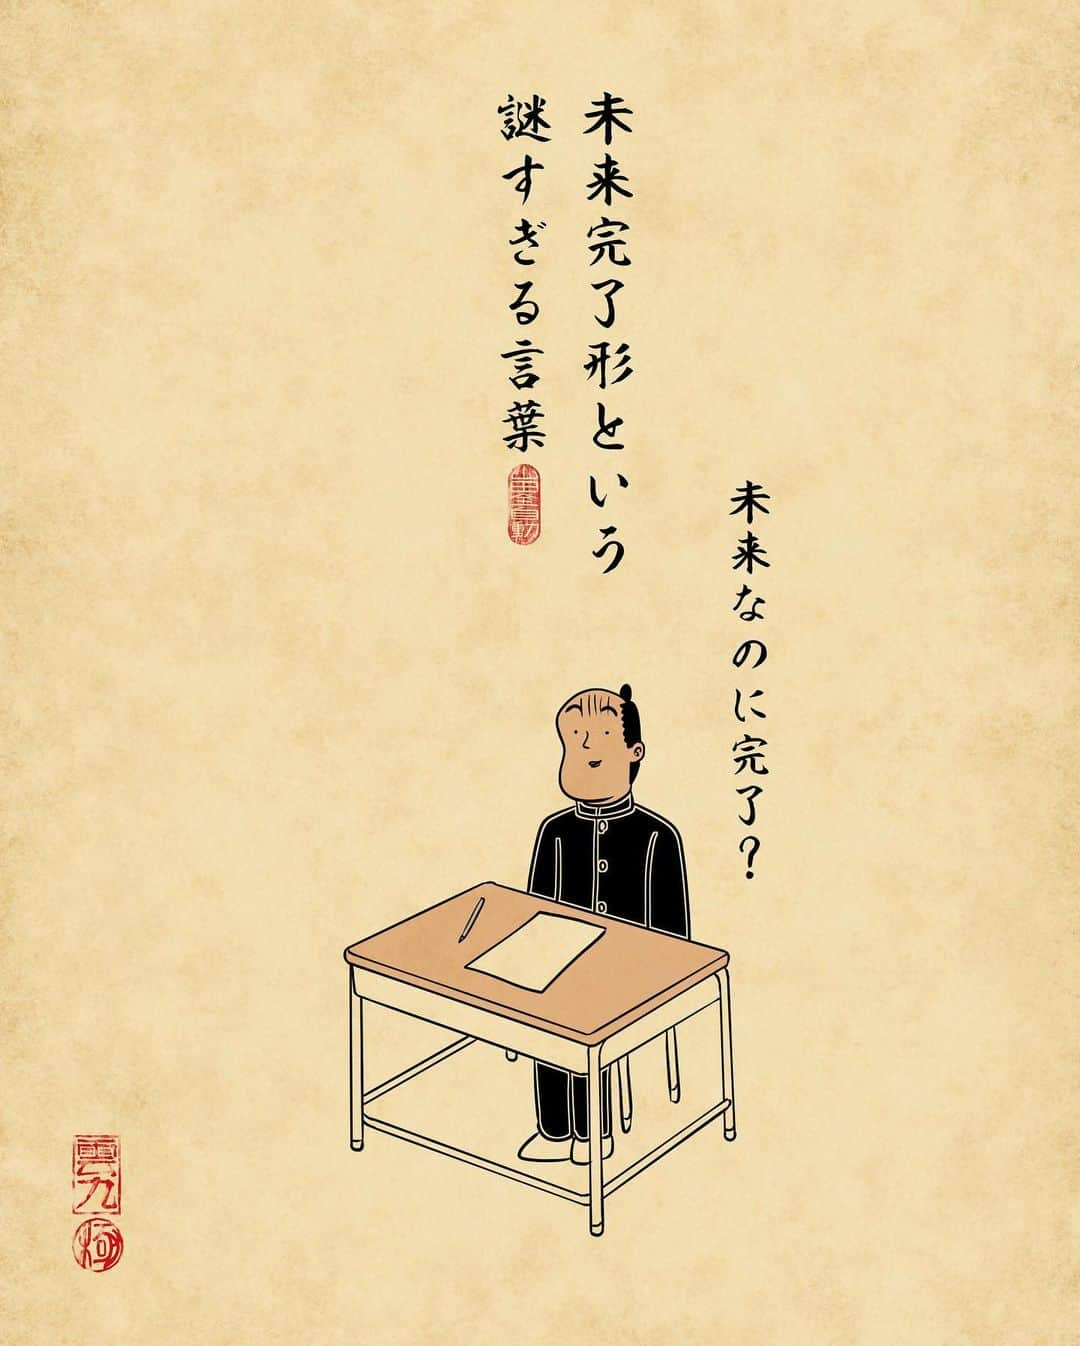 未来完了形という
謎すぎる言葉
未来なのに完了?